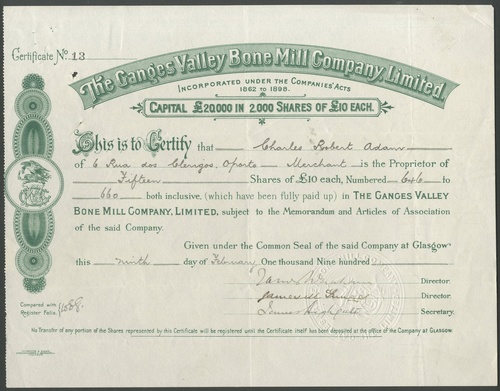 Certificate No. 13
The Ganges Valley Bone Mill Company, Limited.
INCORPORATED UNDER THE COMPANIES' ACTS
1862 TO 1898.
CAPITAL £20,000 IN 2,000 SHARES OF £10 EACH.
This is to Certify that Charles Robert Adam
of 6 Rua dos Clerigos, Oporto - Merchant - is the Proprietor of
Fifteen Shares of £10 each, Numbered 646 to
660 both inclusive, (which have been fully paid up) in THE GANGES VALLEY
BONE MILL COMPANY, LIMITED, subject to the Memorandum and Articles of Association
of the said Company.
Given under the Common Seal of the said Company at Glasgow
this ninth day of February One thousand Nine hundred
Director.
Director.
Secretary.
Compared with
Register Folio.
No Transfer of any portion of the Shares represented by this Certificate will be registered until the Certificate itself has been deposited at the office of the Company at GLASGOW.